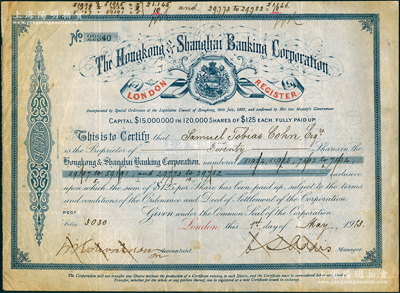 and 29773 to 29782
No 22540
The Hongkong & Shanghai Banking Corporation.
LONDON REGISTER
Incorporated by Special Ordinance of the Legislative Council of Hongkong, and confirmed by Her late Majesty's Government
CAPITAL $15,000,000 IN 120,000 SHARES OF $125 EACH, FULLY PAID UP.
This is to Certify that Samuel Tobias Cohn Esqre
is the Proprietor of Twenty Shares in the
Hongkong & Shanghai Banking Corporation, numbered
and 29773 to 29782 inclusive
upon which the sum of $125 per Share has been Paid up, subject to the terms
and conditions of the Ordinance and Deed of Settlement of the Corporation.
Given under the Common Seal of the Corporation.
REGR
Folio 3030
London: this 1st day of May 1913.
Accountant
Manager.
The Corporation will not transfer any Shares without the production of a Certificate relating to such Shares, and the Certificate must be surrendered before any Deed of
Transfer, whether for the whole or any portion thereof, can be registered or a new Certificate issued in exchange.